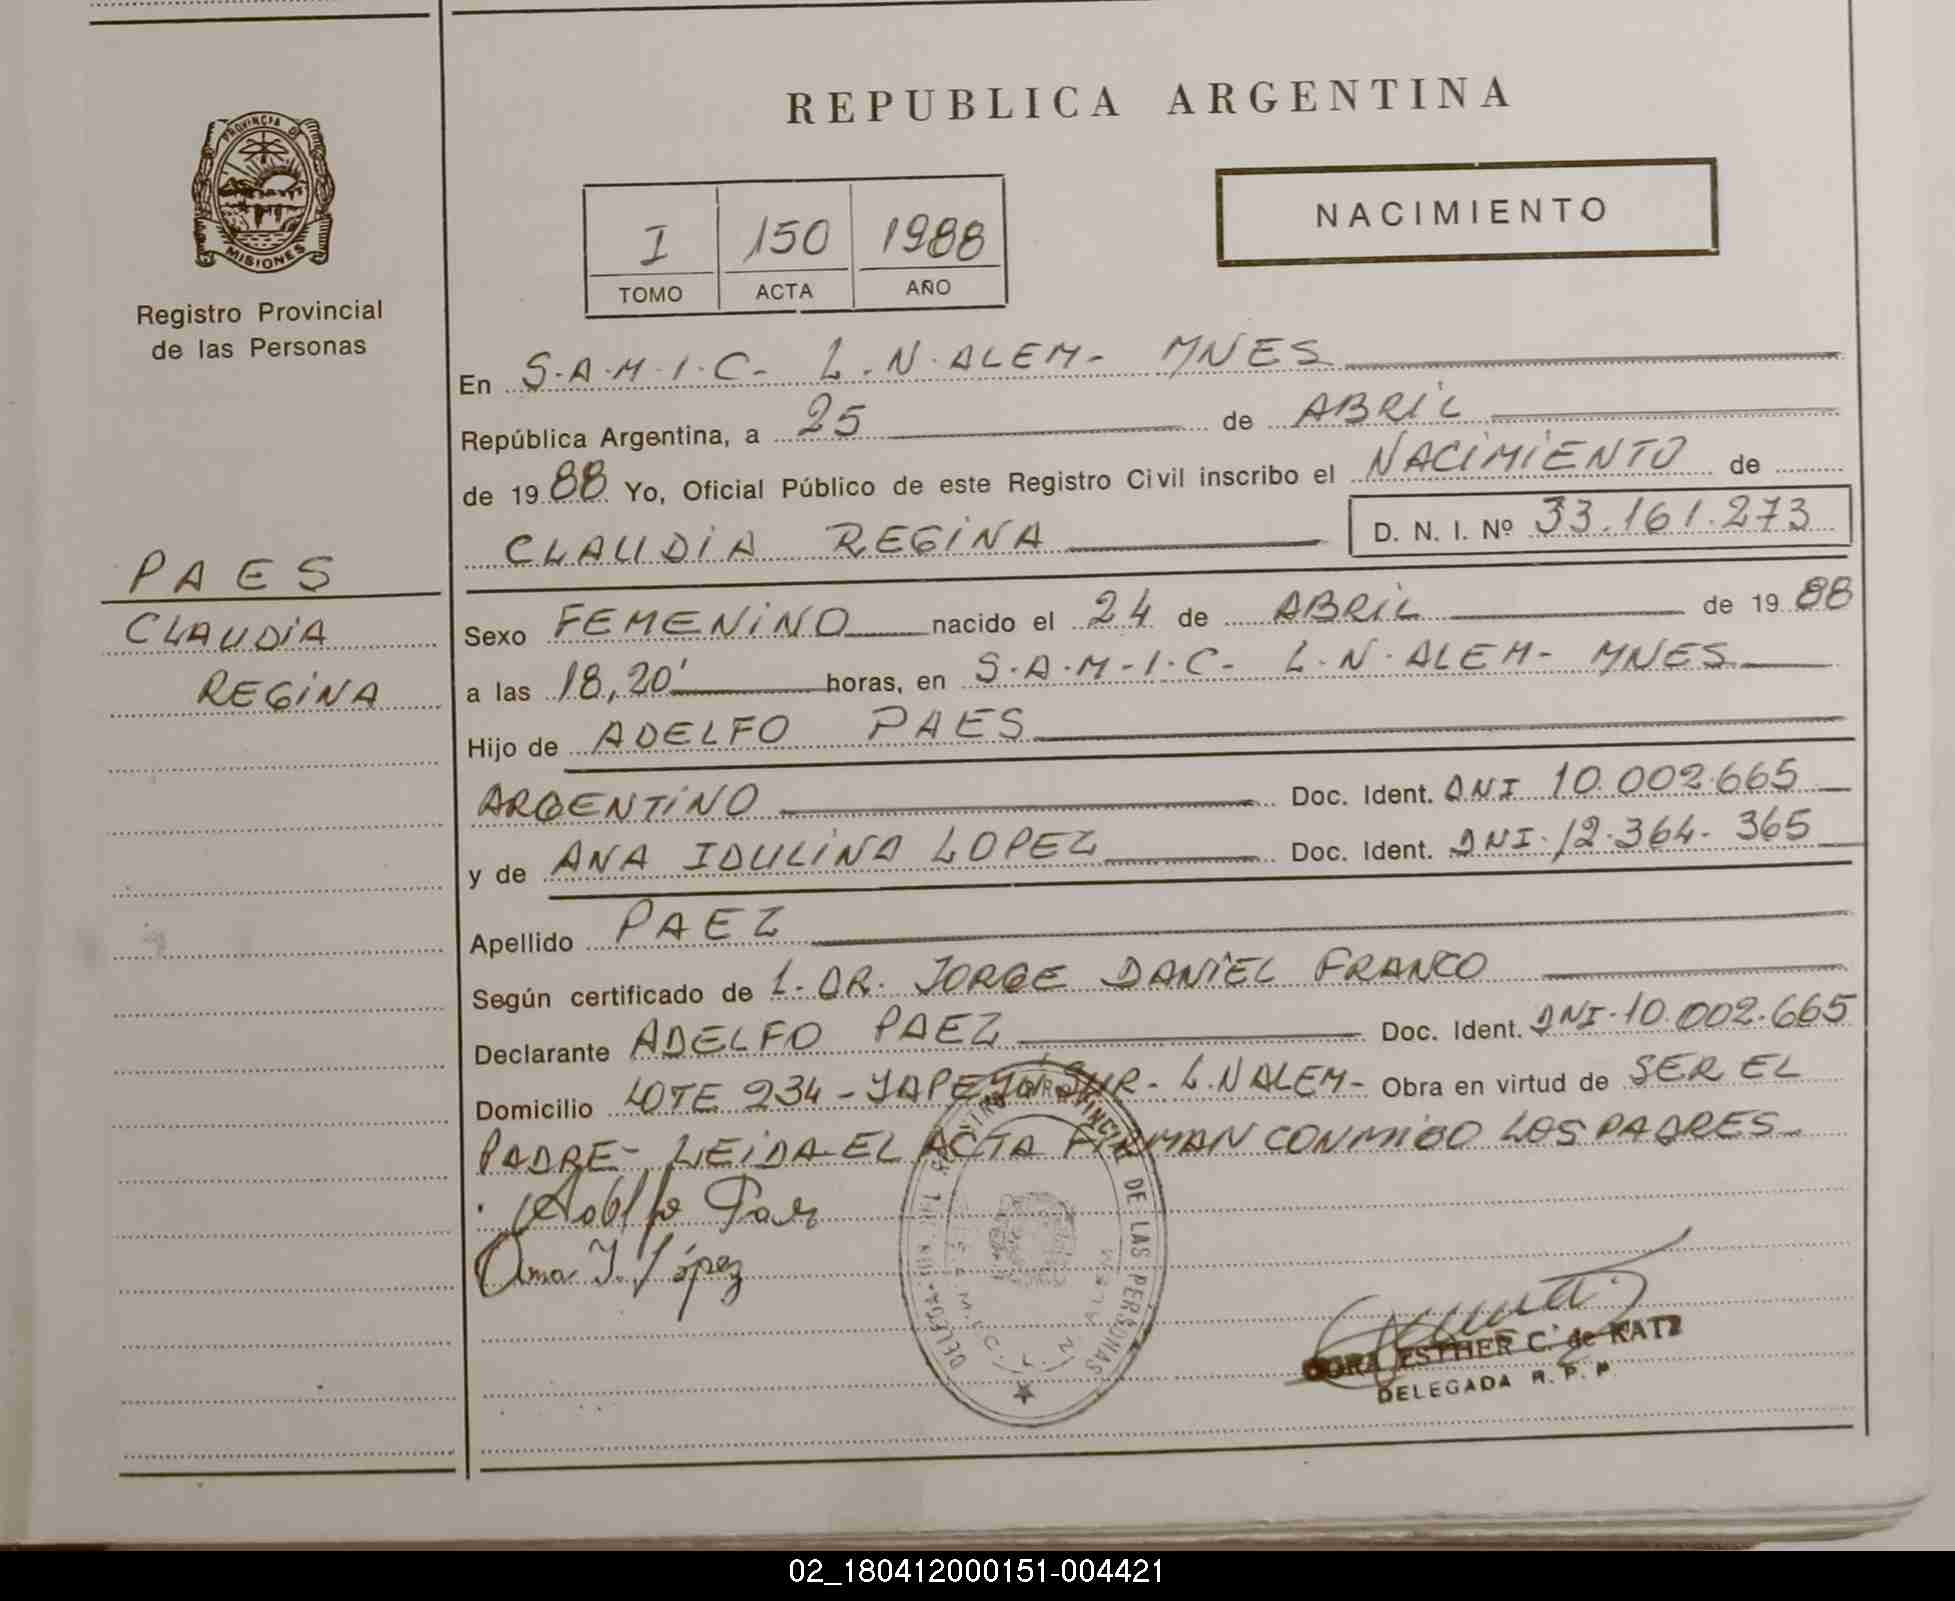 REPUBLICA ARGENTINA
PROVINCIA DE
MISIONES
Registro Provincial
de las Personas
I 150 1988
TOMO ACTA AÑO
NACIMIENTO
En S.A.M.I.C- L.N.ALEM- MNES
República Argentina, a 25 de ABRIL
de 1988 Yo, Oficial Público de este Registro Civil inscribo el NACIMIENTO de
CLAUDIA REGINA D. N. I. Nº 33.161.273
PAES
CLAUDIA
REGINA
Sexo FEMENINO nacido el 24 de ABRIL de 1988
a las 18,20' horas, en S.A.M-I.C- L.N.ALEM- MNES
Hijo de ADELFO PAES
ARGENTINO Doc. Ident. DNI 10.002.665
y de ANA IDULINA LOPEZ Doc. Ident. DNI.12.364.365
Apellido PAEZ
Según certificado de L. DR. JORGE DANIEL FRANCO
Declarante ADELFO PAEZ Doc. Ident. DNI-10.002.665
Domicilio LOTE 234-YAPEYU SUR- L.N ALEM- Obra en virtud de SER EL
PADRE- LEIDA EL ACTA FIRMAN CONMIGO LOS PADRES
Ana I. López
DE LAS PERSONAS
N. ALEM
DORA ESTHER C. de KATZ
DELEGADA R. P. P.
02_180412000151-004421